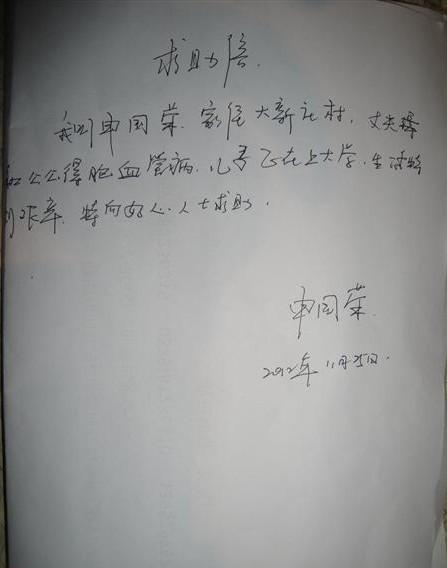 求助信
我叫申国荣. 家住大新社村, 丈夫
和公公得脑血管病, 儿子正在上大学, 生活特
别艰辛. 特向好心人士求助.
申国荣
2012年11月25日.